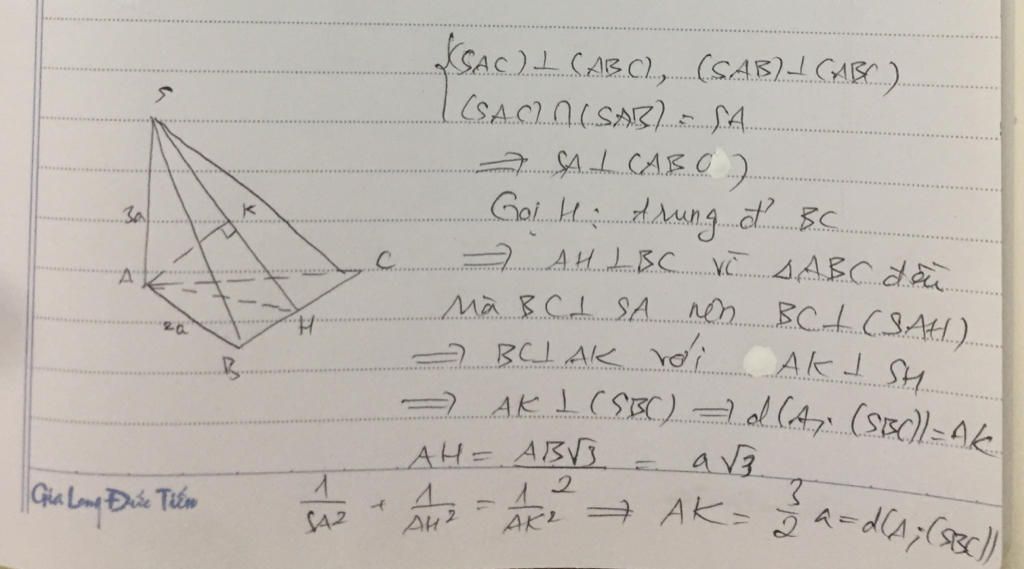 (SAC) ⊥ (ABC), (SAB) ⊥ (ABC)
(SAC) ∩ (SAB) = SA
⟹ SA ⊥ (ABC)
Gọi H: trung đ' BC
⟹ AH ⊥ BC vì ΔABC đều
Mà BC ⊥ SA nên BC ⊥ (SAH)
⟹ BC ⊥ AK với AK ⊥ SH
⟹ AK ⊥ (SBC) ⟹ d(A; (SBC)) = AK
AH = AB√3/2 = a√3
1/SA² + 1/AH² = 1/AK² ⟹ AK = 3/2 a = d(A; (SBC))
S
3a
K
A
C
2a
H
B
Gia Long Đức Tiến